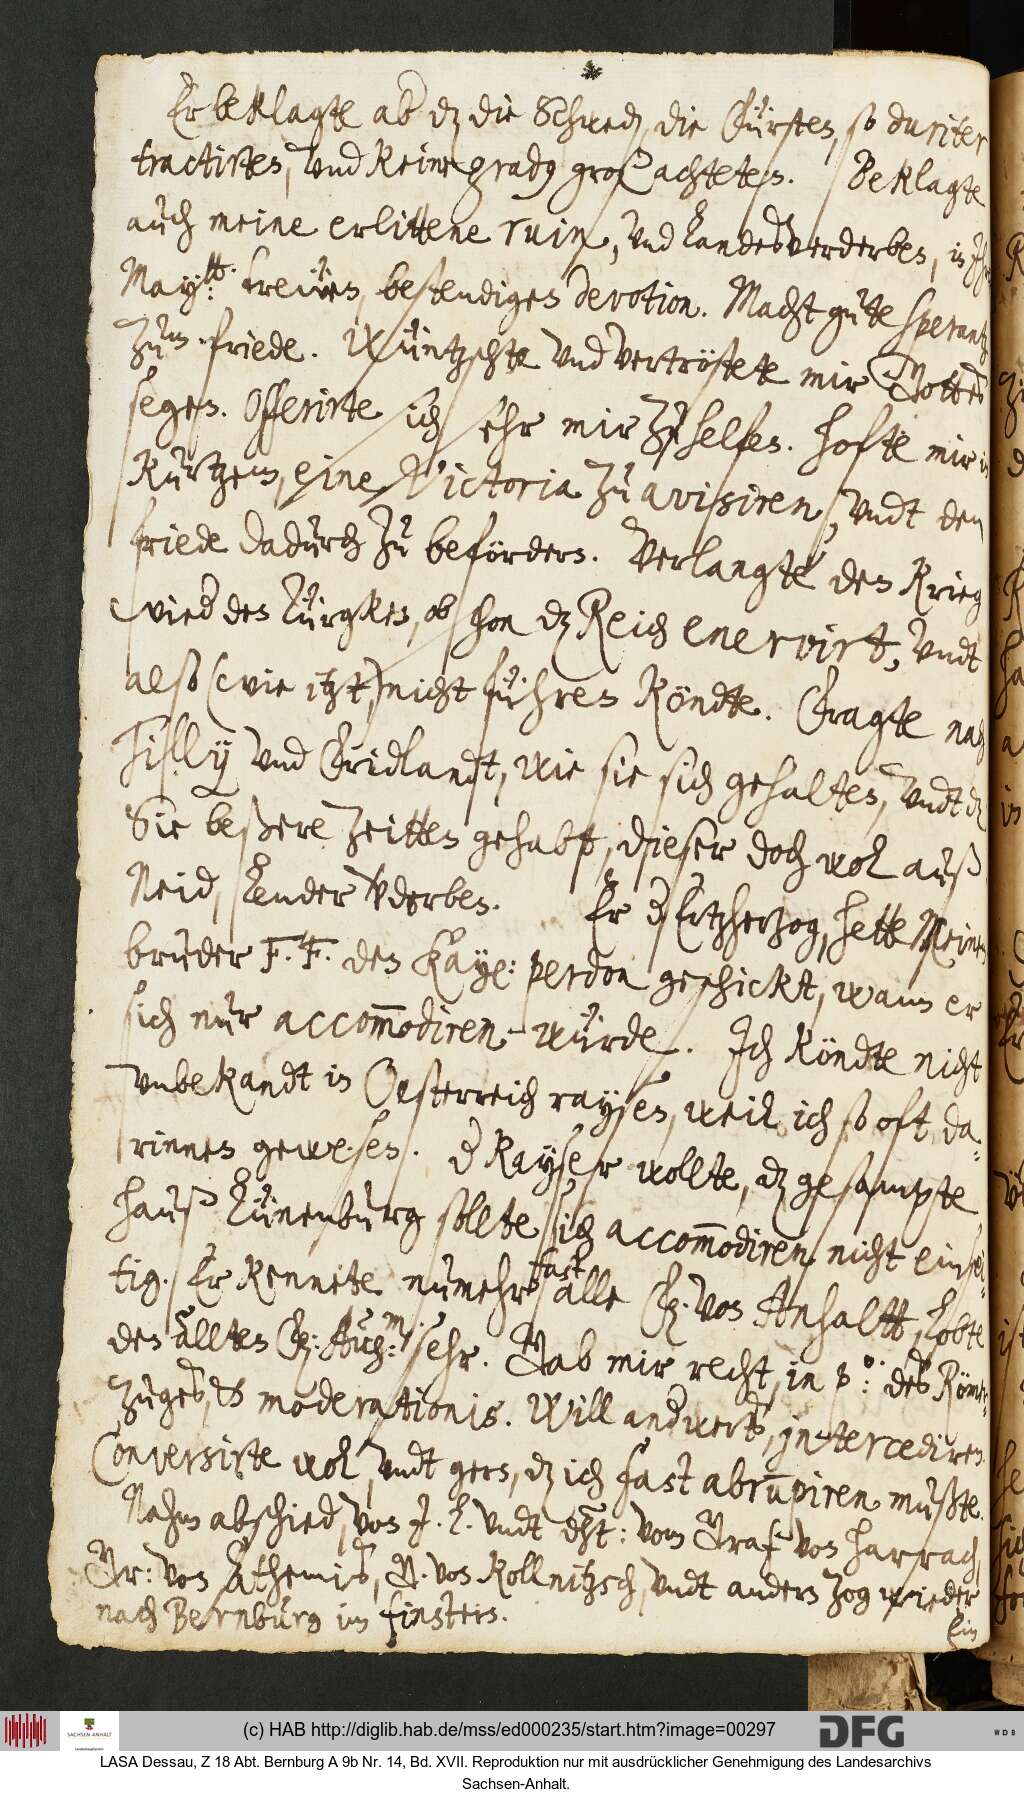 Er beklagte ab dz die Schwed, die Fürsten, so duriter
tractirten, vnd keine gradg groß achteten. Beklagte
auch meine erlittene ruin, vnd Landesverderben, in Ihr
May:tt treüen, bestendigen devotion. Macht gute sperantz
zum friede. Wüntzschte vnd vertröstete mir Gottes
segen. Offerirte sich sehr mir zu helfen. Hofte mir in
kurtzem, eine Victoria zu avisiren, vndt den
friede dadurch zu befördern. Verlangte den Krieg
wied den Türgken, ob schon dz Reich enervirt, vndt
also (wie itzt,) nicht führen köndte. Fragte nach
Tilly vnd Fridlandt, wie sie sich gehalten, vndt dz
Sie beßere Zeitten gehabt, dieser doch wol auß
Neid, Lender verderben. Er d Ertzherzog, hette Meinem
bruder F. F. den Kaye: perdon geschickt, wann er
sich nur accom̅odiren würde. Ich köndte nicht
vnbekandt in Oesterreich raysen, weil ich so oft da=
rinnen gewesen. d Kayser wollte, dz gesampte
hauß Lünenburg sollte sich accom̅odiren nicht einsei=
tig. Er kennete numehr fast alle F. von Anhaltt, Lobte
den ällten F: Aug:m: sehr. Gab mir recht, in p:o des Römer=
zuges, et moderationis. Will andwerts, intercediren.
Conversirte wol, vndt gern, dz ich fast abrumpiren mußte.
Nahm abschied, von I. L. vndt dht: vom Graf von Harrach,
Gr: von Lathemis, G. von Kollnitzsch, vndt andern zog wieder
nach Bernburg im finstern.
Ein
(c) HAB http://diglib.hab.de/mss/ed000235/start.htm?image=00297
SACHSEN-ANHALT
DFG
WDB
LASA Dessau, Z 18 Abt. Bernburg A 9b Nr. 14, Bd. XVII. Reproduktion nur mit ausdrücklicher Genehmigung des Landesarchivs
Sachsen-Anhalt.